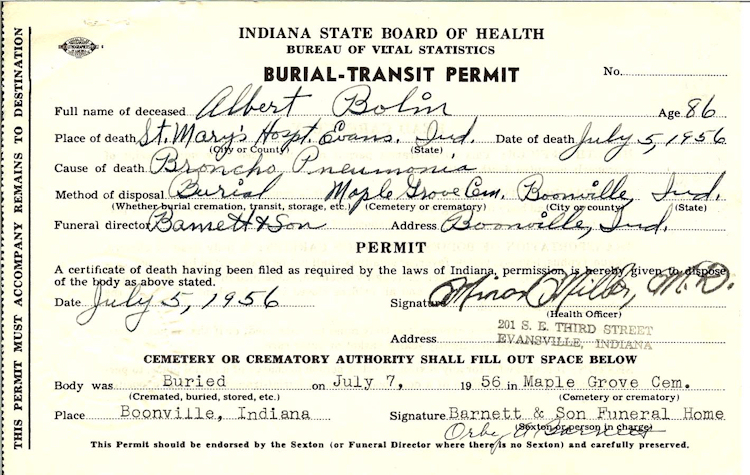 INDIANA STATE BOARD OF HEALTH
BUREAU OF VITAL STATISTICS
BURIAL-TRANSIT PERMIT
No.
Full name of deceased Albert Bolin Age 86
Place of death St. Mary's Hospt. Evans. Ind. Date of death July 5, 1956
(City or County) (State)
Cause of death Broncho Pneumonia
Method of disposal Burial Maple Grove Cem. Boonville, Ind.
(Whether burial cremation, transit, storage, etc.) (Cemetery or crematory) (City or county) (State)
Funeral director Barnett & Son Address Boonville, Ind.
PERMIT
A certificate of death having been filed as required by the laws of Indiana, permission is hereby given to dispose
of the body as above stated.
Date July 5, 1956 Signature Minor Miller, M.D.
(Health Officer)
Address 201 S. E. THIRD STREET
EVANSVILLE, INDIANA
CEMETERY OR CREMATORY AUTHORITY SHALL FILL OUT SPACE BELOW
Body was Buried on July 7, 19 56 in Maple Grove Cem.
(Cremated, buried, stored, etc.) (Cemetery or crematory)
Place Boonville, Indiana Signature Barnett & Son Funeral Home
(Sexton or person in charge)
Orby A Barnett
This Permit should be endorsed by the Sexton (or Funeral Director where there is no Sexton) and carefully preserved.
THIS PERMIT MUST ACCOMPANY REMAINS TO DESTINATION